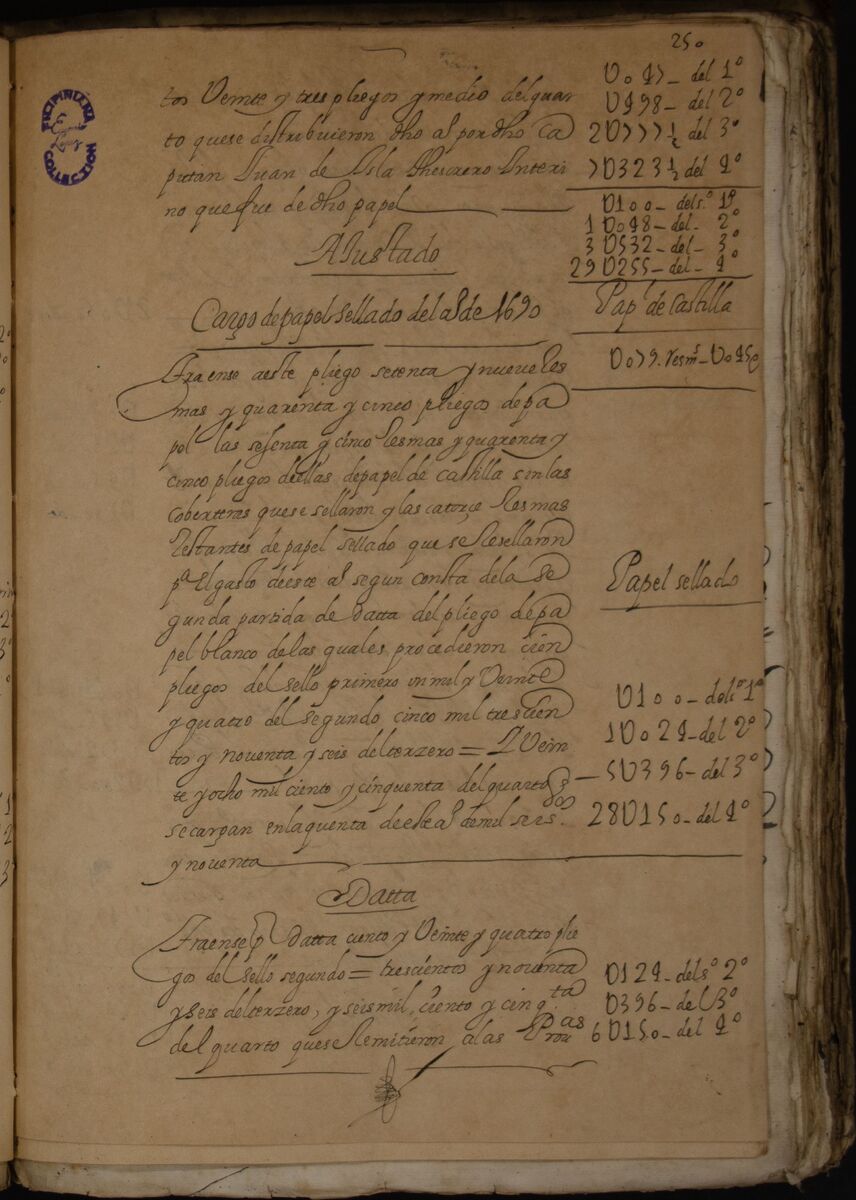 250
FILIPINIANA
COLLECTION
tos Veinte y tres pliegos y medio del quar
to que se distribuieron dho aº por dho Ca
pitan Juan de Isla thesorero Interi
no que fue de dho papel
Vo47_ del 1º
V498_ del 2º
2V777½ del 3º
7V323½ del 4º
V100_ del sº 1º
1Vo48_ del_ 2º
3V532_ del_ 3º
29V255_ del_ 4º
Ajustado
Papl de Castilla
Cargo de papel sellado del aº de 1690
Vo79. resms_ Vo45
Traense a este pliego setenta y nueve Res
mas y quarenta y cinco pliegos de pa
pel las sesenta y cinco Resmas y quarenta y
cinco pliegos de ellas de papel de Castilla sin las
coberteras que se sellaron y las catorçe Resmas
Restantes de papel sellado que se Resellaron
pª El gasto de este aº segun consta de la se
gunda partida de datta del pliego de pa
pel blanco de las quales procedieron cien
pliegos del sello primero un mil y Veinte
y quatro del segundo cinco mil tres cien
tos y noventa y seis del terzero = Y Vein
te y ocho mil ciento y cinquenta del quarto q
se cargan en la quenta de este aº de mil seisºs
y noventa
Papel sellado
V100_ del sº 1º
1Vo24_ del 2º
_5V396_ del 3º
28V150_ del 4º
Datta
Traense pr datta ciento y Veinte y quatro plie
gos del sello segundo = trescientos y noventa
y seis del terzero, y seis mil, ciento y cinqta
del quarto que se Remitieron a las Prouas
V124_ del sº 2º
V396_ del 3º
6V150_ del 4º